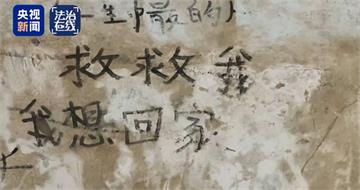 央视新闻 法治在线
一生中最的
救救我
我想回家